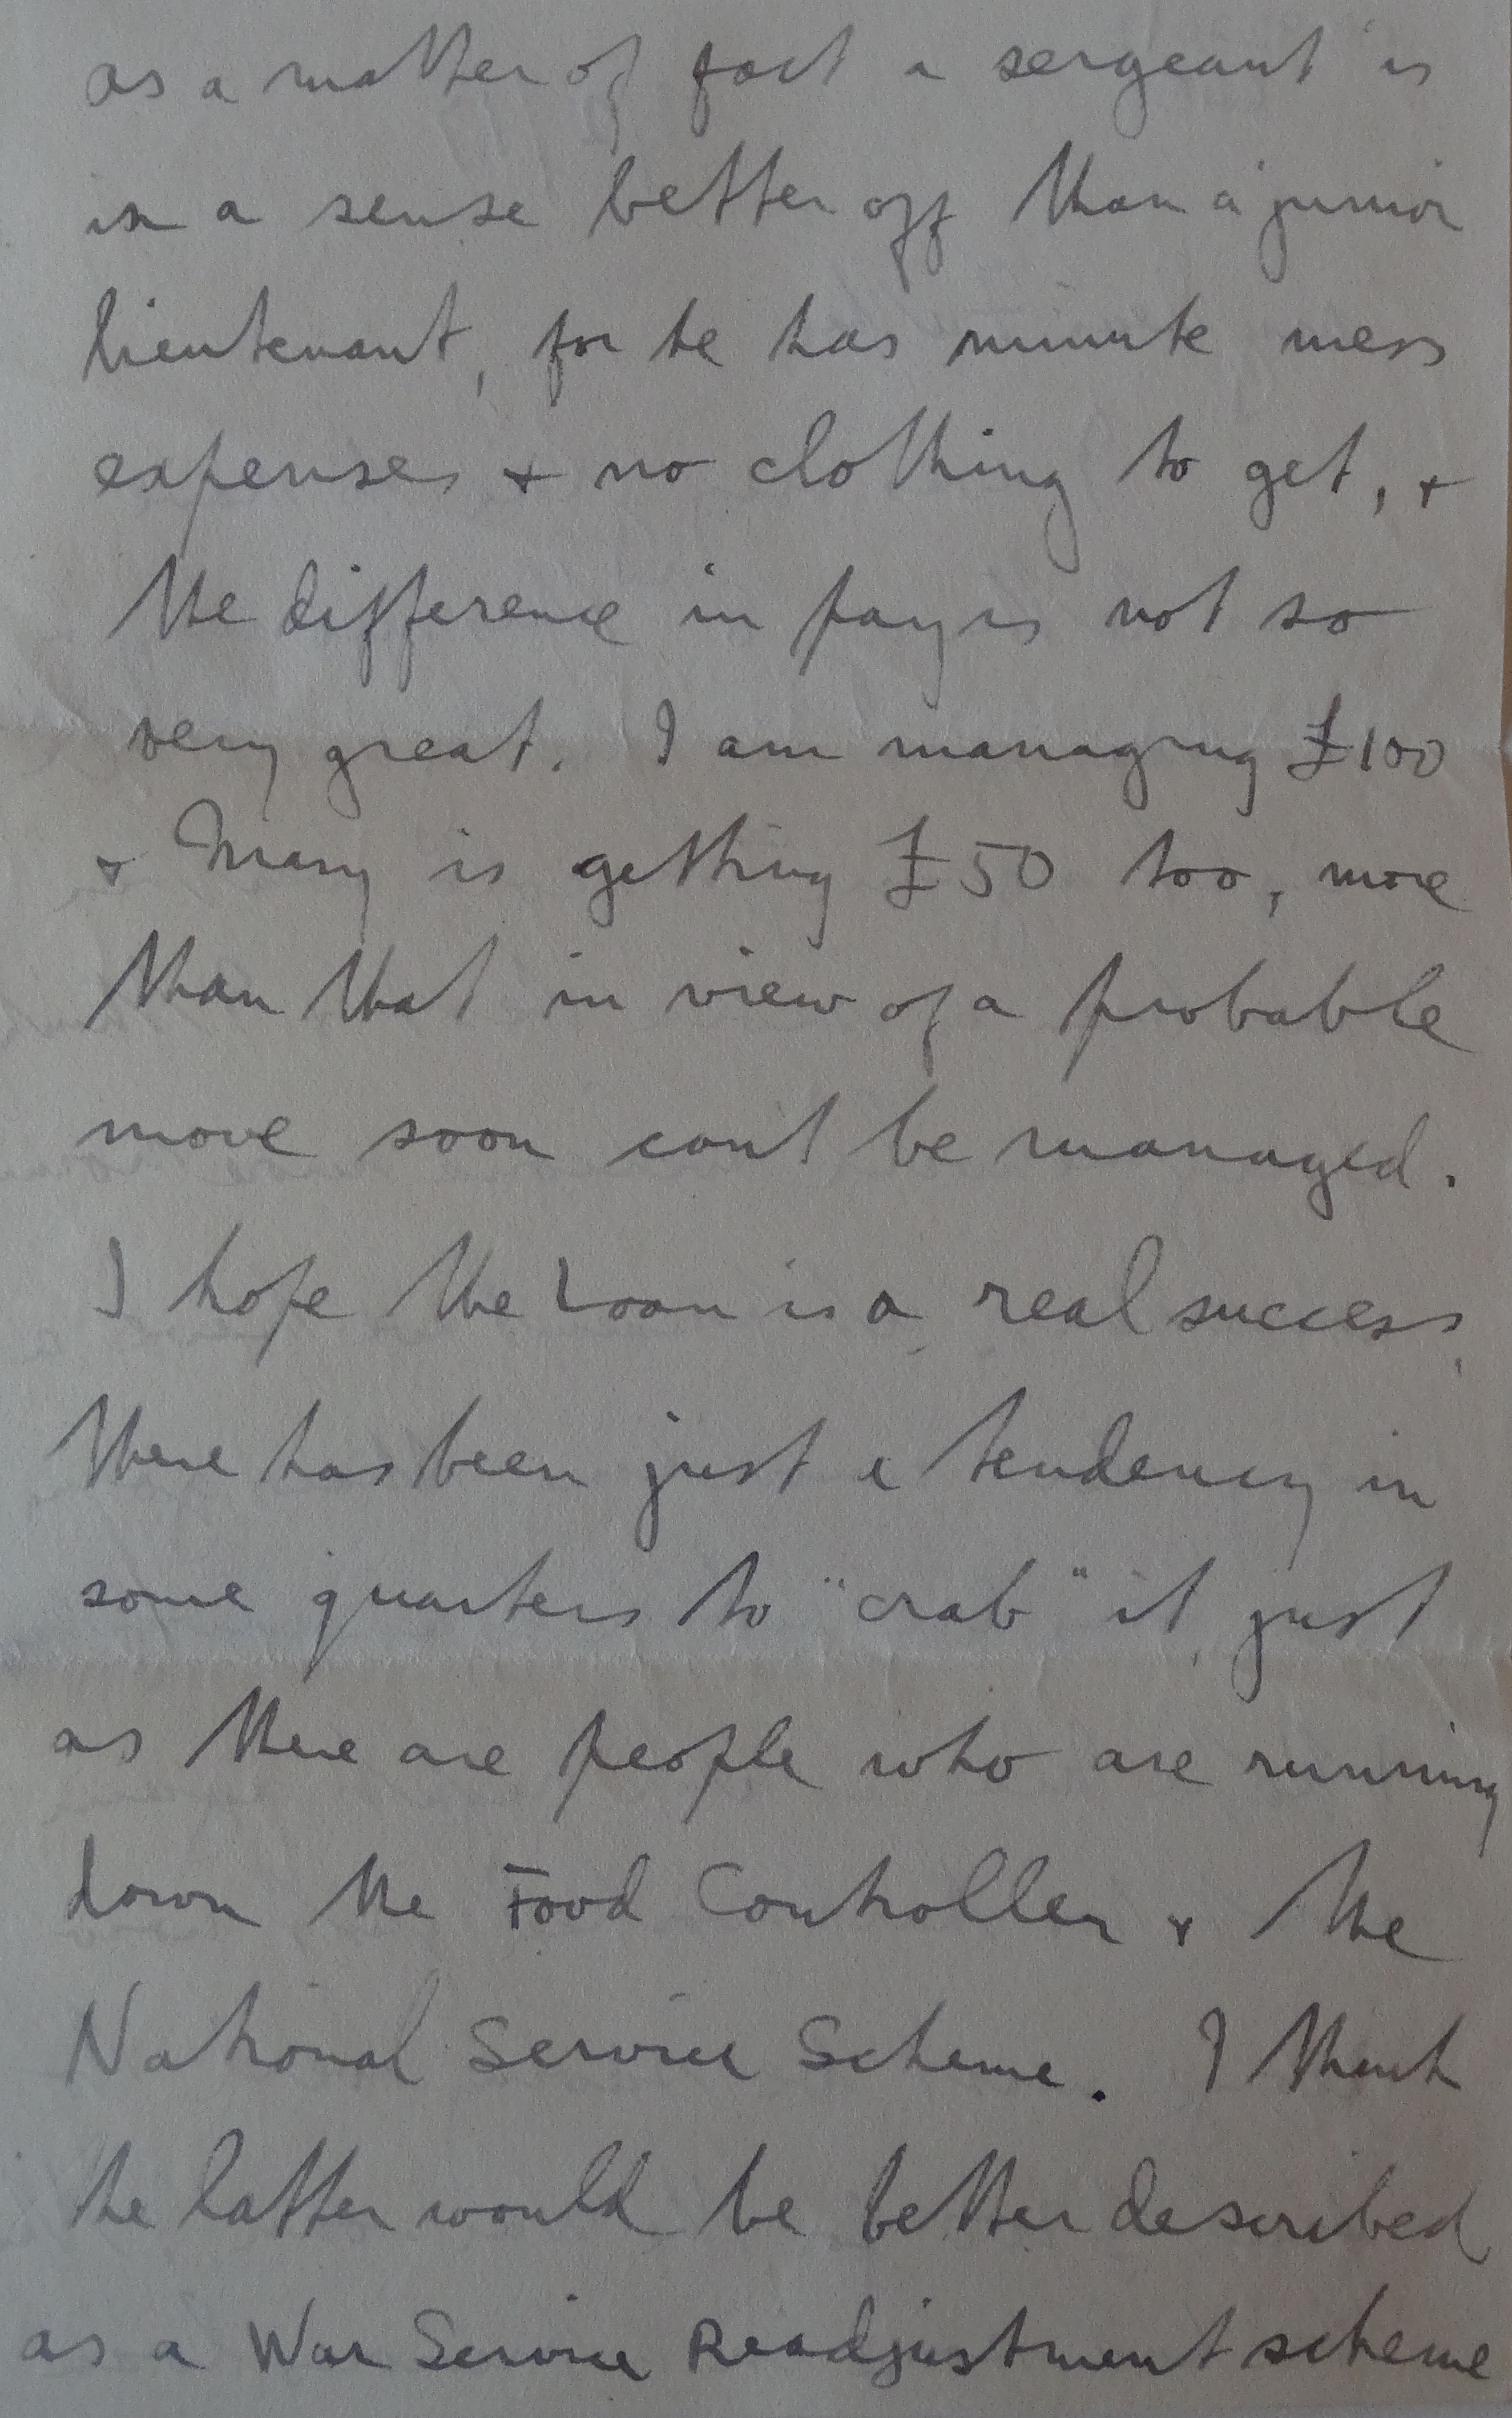 as a matter of fact a sergeant is
in a sense better off than a junior
lieutenant, for he has minute mess
expenses + no clothing to get, +
the difference in pay is not so
very great. I am managing £100
+ Mary is getting £50 too, more
than that in view of a probable
move soon cant be managed.
I hope the Loan is a real success,
there has been just a tendency in
some quarters to "crab" it, just
as there are people who are running
down the Food Controller + the
National Service Scheme. I think
the latter would be better described
as a War Service Readjustment scheme